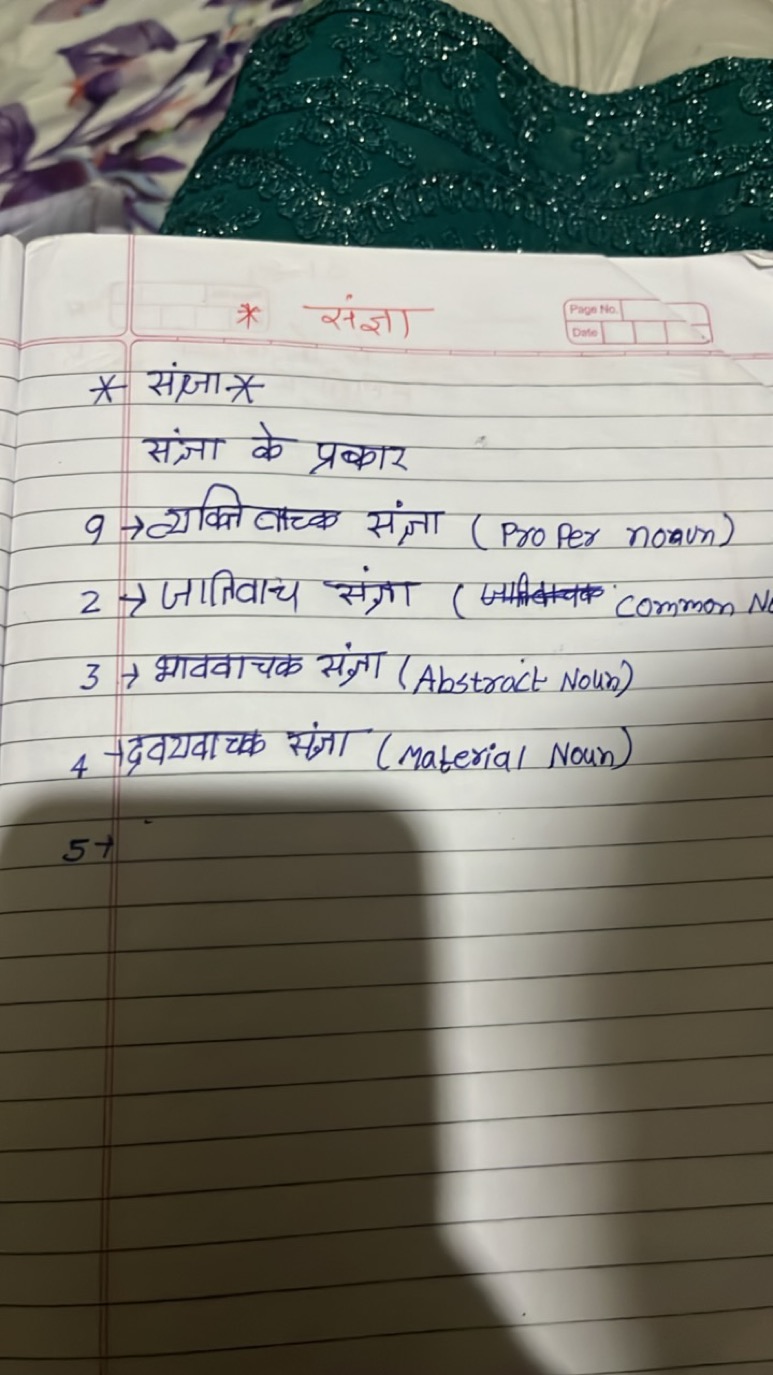 * संज्ञा
Page No.
Date
* संज्ञा *
संज्ञा के प्रकार
१ → व्यक्ति वाच्क संज्ञा ( Proper nouun)
2 → जातिवाच संज्ञा ( जातिवाचक common No
3 → भाववाचक संज्ञा (Abstract Noun)
4 → द्रवयवाचक संज्ञा (Material Noun)
5 →